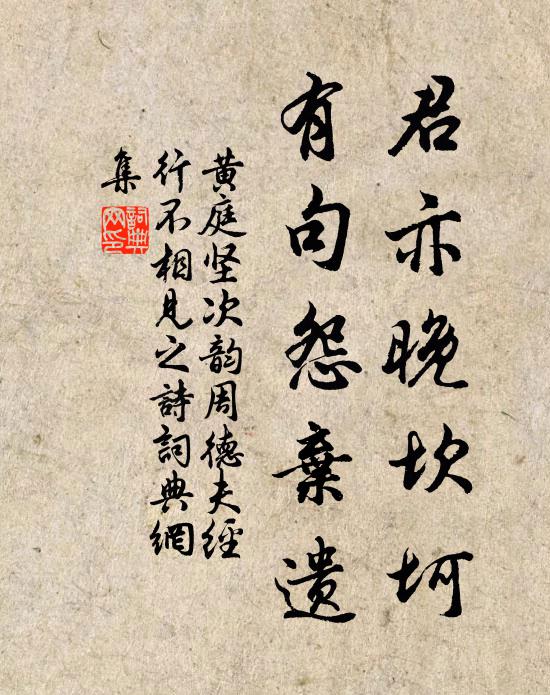 君亦晚坎坷
有句怨棄遗
黄庭坚次韵周德夫經
行不相見之詩詞典網
集
詞典
网印